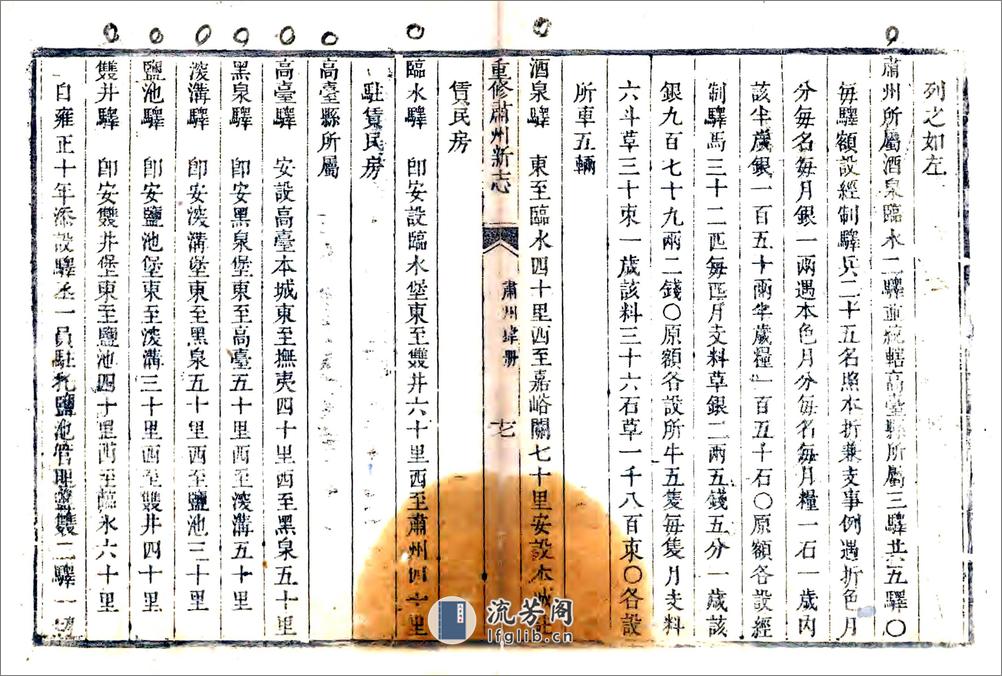 列之如左
肅州所屬酒泉臨水二驛並統轄高臺縣所屬三驛共五驛〇
每驛額設經制驛兵二十五名照本折兼支事例遇折色月
分每名每月銀一兩遇本色月分每名每月糧一石一歲內
該半歲銀一百五十兩半歲糧一百五十石〇原額各設經
制驛馬三十二匹每匹月支料草銀二兩五錢五分一歲該
銀九百七十九兩二錢〇原額各設所牛五隻每隻月支料
六斗草三十束一歲該料三十六石草一千八百束〇各設
所車五輛
酒泉驛 東至臨水四十里西至嘉峪關七十里安設本城
賃民房
臨水驛 卽安設臨水堡東至雙井六十里西至肅州四十里
駐賃民房
高臺縣所屬
高臺驛 安設高臺本城東至撫夷四十里西至黑泉五十里
黑泉驛 卽安黑泉堡東至高臺五十里西至深溝五十里
深溝驛 卽安深溝堡東至黑泉五十里西至鹽池三十里
鹽池驛 卽安鹽池堡東至深溝三十里西至雙井四十里
雙井驛 卽安雙井堡東至鹽池四十里西至臨水六十里
自雍正十年添設驛丞一員駐札鹽池管理鹽雙二驛一
重修肅州新志
肅州 冊
流芳阁
lfglib.cn